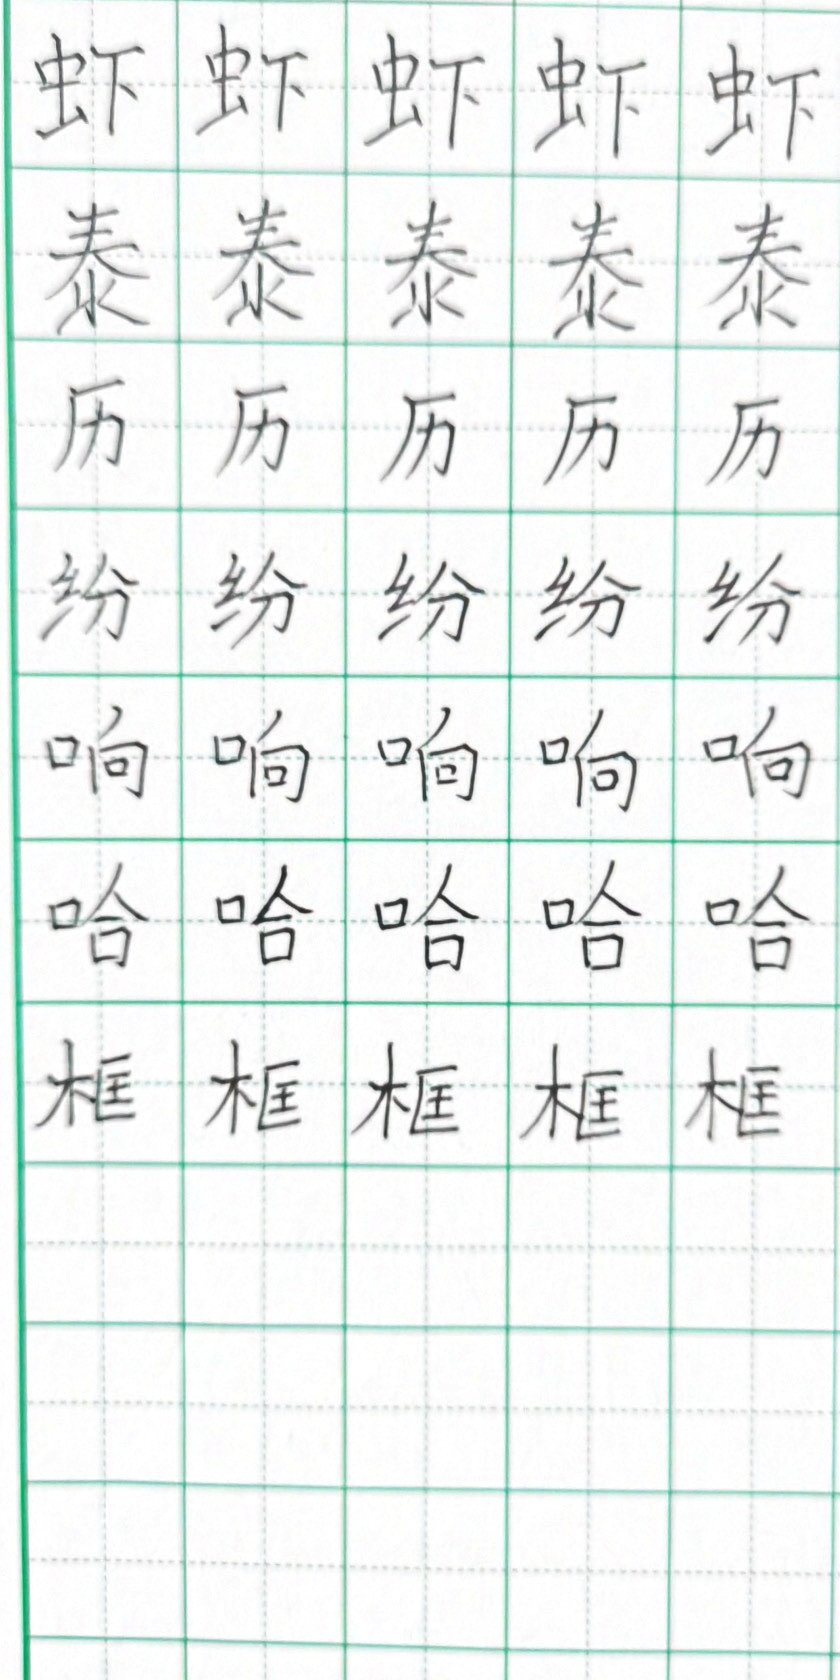 虾虾虾虾虾
泰泰泰泰泰
历历历历历
纷纷纷纷纷
响响响响响
哈哈哈哈哈
框框框框框